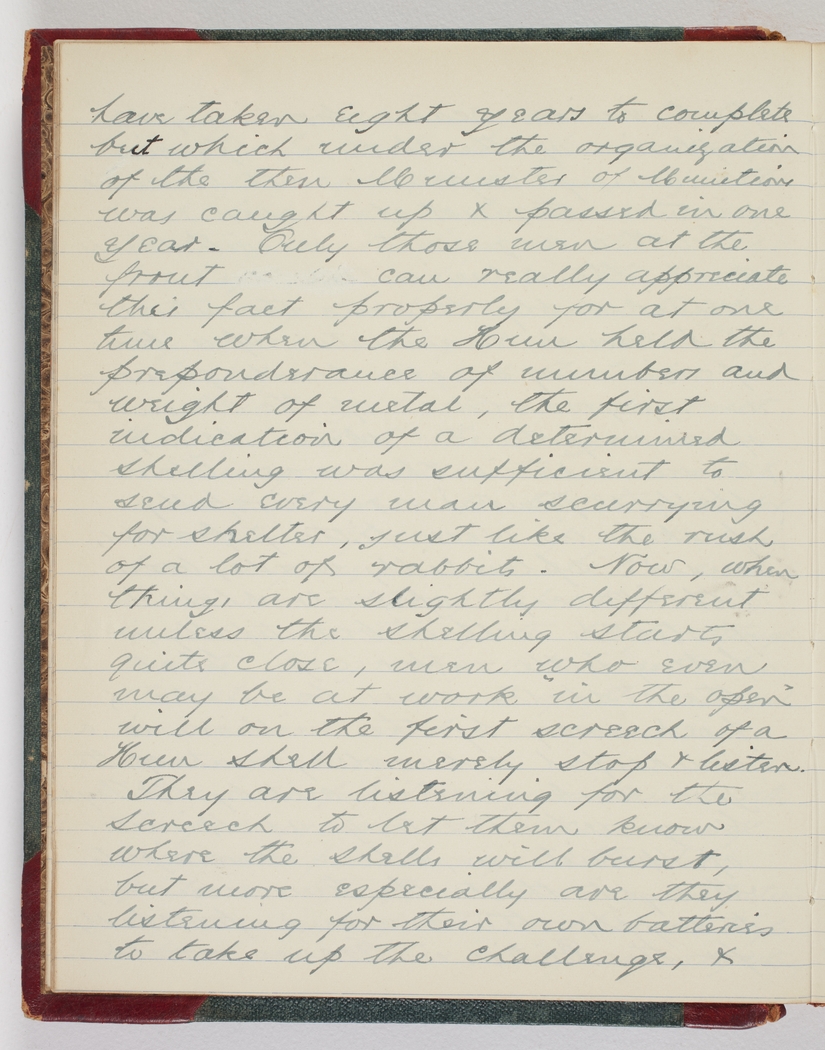 have taken eight years to complete
but which under the organization
of the then Minister of Munitions
was caught up & passed in one
year. Only those men at the
front can really appreciate
this fact properly for at one
time when the Hun held the
preponderance of numbers and
weight of metal, the first
indication of a determined
shelling was sufficient to
send every man scurrying
for shelter, just like the rush
of a lot of rabbits. Now, when
things are slightly different
unless the shelling starts
quite close, men who even
may be at work "in the open"
will on the first screech of a
Hun shell merely stop & listen.
They are listening for the
screech to let them know
where the shells will burst,
but more especially are they
listening for their own batteries
to take up the challenge, &